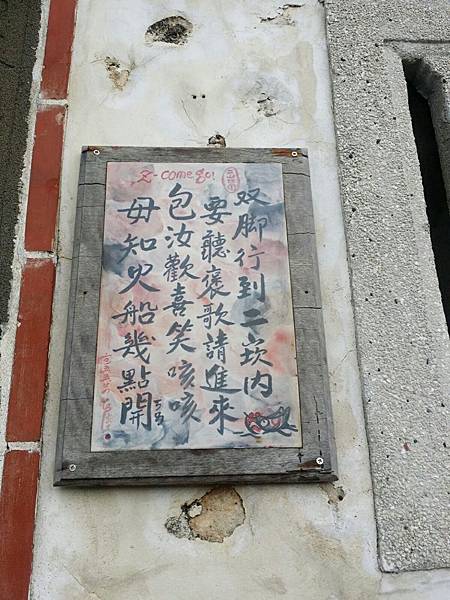 双脚行到二崁内
要聽褒歌請進來
包汝歡喜笑咳咳
毋知火船幾點開
ㄎㄨㄧ
2-come go!